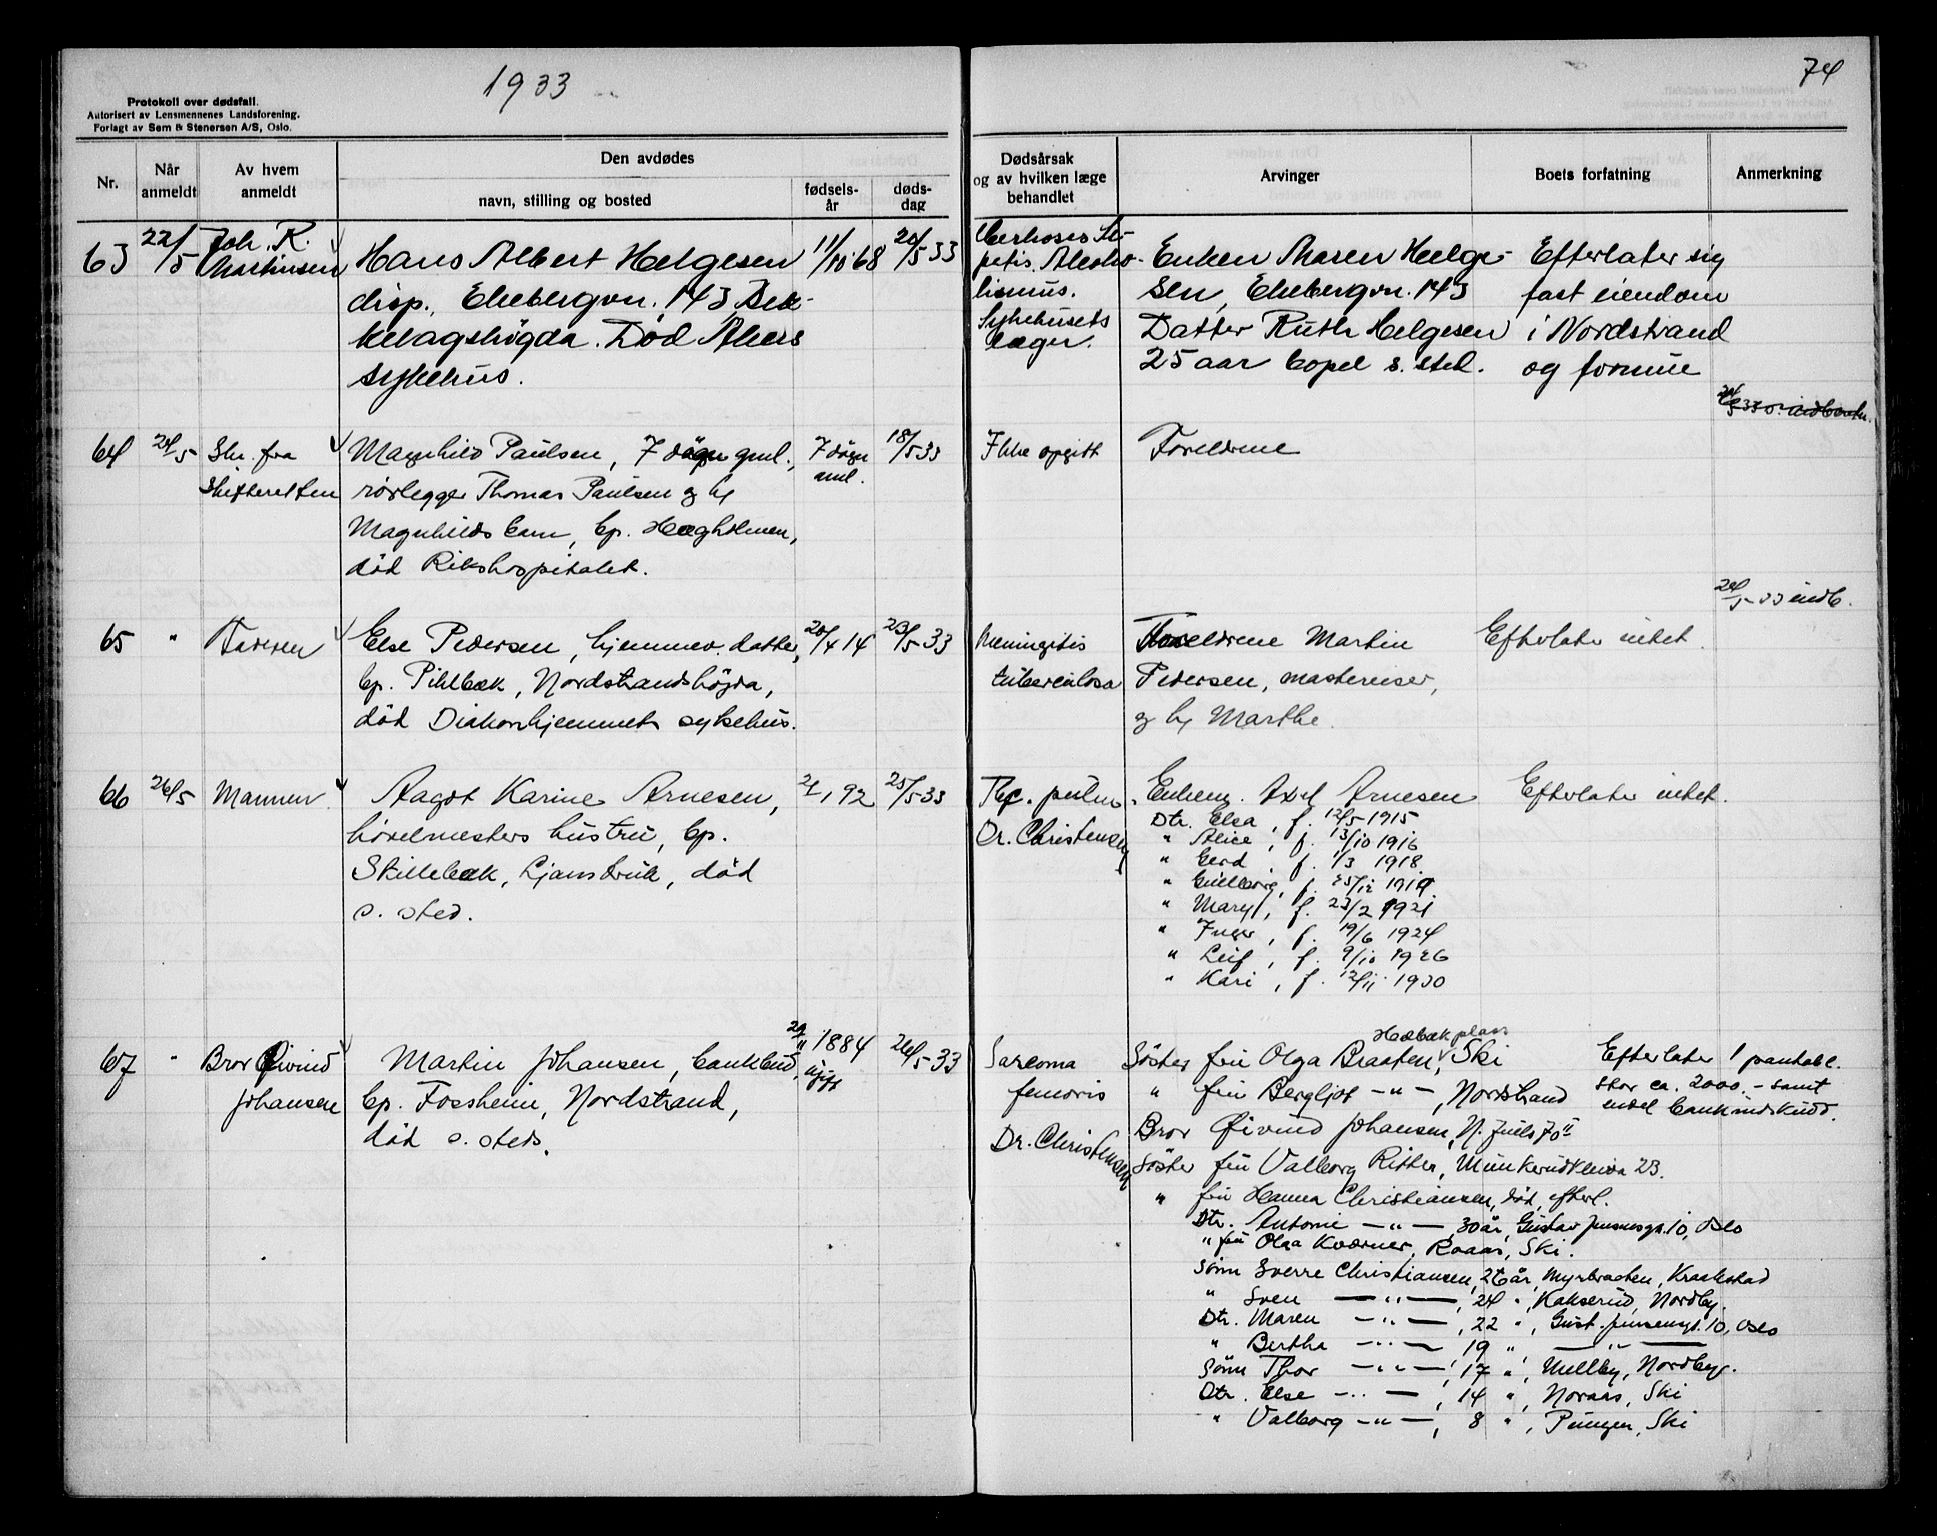 1933
74
Protokoll over dødsfall.
Autorisert av Lensmennenes Landsforening.
Forlagt av Sem & Stenersen A/S, Oslo.
Nr.
Når anmeldt
Av hvem anmeldt
Den avdødes
navn, stilling og bosted
fødsels-år
døds-dag
Dødsårsak
og av hvilken læge
behandlet
Arvinger
Boets forfatning
Anmerkning
63 22/5 Joh. R. Martinsen
Hans Albert Helgesen 11/10 68 20/5 33
disp., Ekebergvn. 143 Bek-
kelagshögda. Död Akers
sykehus.
Alkoho-
lismus.
Sykehusets
læger.
Enken Maren Helge-
sen, Ekebergvn. 143
Datter Ruth Helgesen
25 aar bopel s. sted.
Efterlater sig
fast eiendom
i Nordstrand
og formue
64 24/5 Skr. fra
Skifteretten
Magnhild Paulsen, 7 dögn gml., 7 dögn gml. 18/5 33
rörlegger Thomas Paulsen og hu
Magnhilds barn, bp. Hegholmen,
död Rikshospitalet.
Ikke opgitt
Foreldrene
24/5-33 indb.
65 " Faderen
Else Pedersen, hjemmev. datter, 20/4 14 23/5-33
bp. Pihlbæk, Nordstrandshögda,
död Diakonhjemmets sykehus.
Meningitis
tuberculosa
Foreldrene Martin
Pedersen, maskinist,
og hu Marthe.
Efterlater intet.
66 26/5 Mannen
Aagot Karine Arnesen, 2/1 92 25/5-33
hövelmesters hustru, bp.
Skillebæk, Ljansbruk, död
s. sted.
Tbc. pulm.
Dr. Christensen
Enkem. Axel Arnesen
Dtr. Elsa, f. 12/5 1915
" Alice, f. 13/10 1916
" Gerd f. 1/3 1918
" Gullborg, f. 25/12 1919
" Mary, f. 23/2 1921
" Inger, f. 19/6 1924
" Leif, f. 9/10 1926
" Kari, f. 12/11 1930
Efterlater intet.
67 " Bror Øivind
Johansen
Martin Johansen, bankbud, 29/11 1884 ugift 26/5-33
bp. Fossheim, Nordstrand,
död s. steds.
Sarcoma
femoris
Dr. Christensen
Hebæk plass
Söster fru Olga Braaten, Ski
" fru Bergljot —"—, Nordstrand
Bror Øivind Johansen, N. Juels 70 II
Söster fru Valborg Ritter, Munkerudkleiva 23.
" fru Hanna Christiansen, död, efterl.
Dtr. Antonie —"—, 30 år, Gustav Jensensgt. 10, Oslo
" fru Olga Kværner, Raaas, Ski.
Sönn Sverre Christiansen, 26 år, Myrbraaten, Kraakstad
" Sven —"—, 24 ", Kakserud, Nordby.
Dtr. Maren —"—, 22 ", Gust. Jensensgt. 10, Oslo
" Bertha —"—, 19 " —"—
Sönn Thor —"—, 17 ", Mellby, Nordby.
Dtr. Else —"—, 14 ", Noraas, Ski
" Valborg —"—, 8 ", Pungen, Ski
Efterlater 1 pantobl.
stor ca. 2000.- samt
endel bankindskudd.